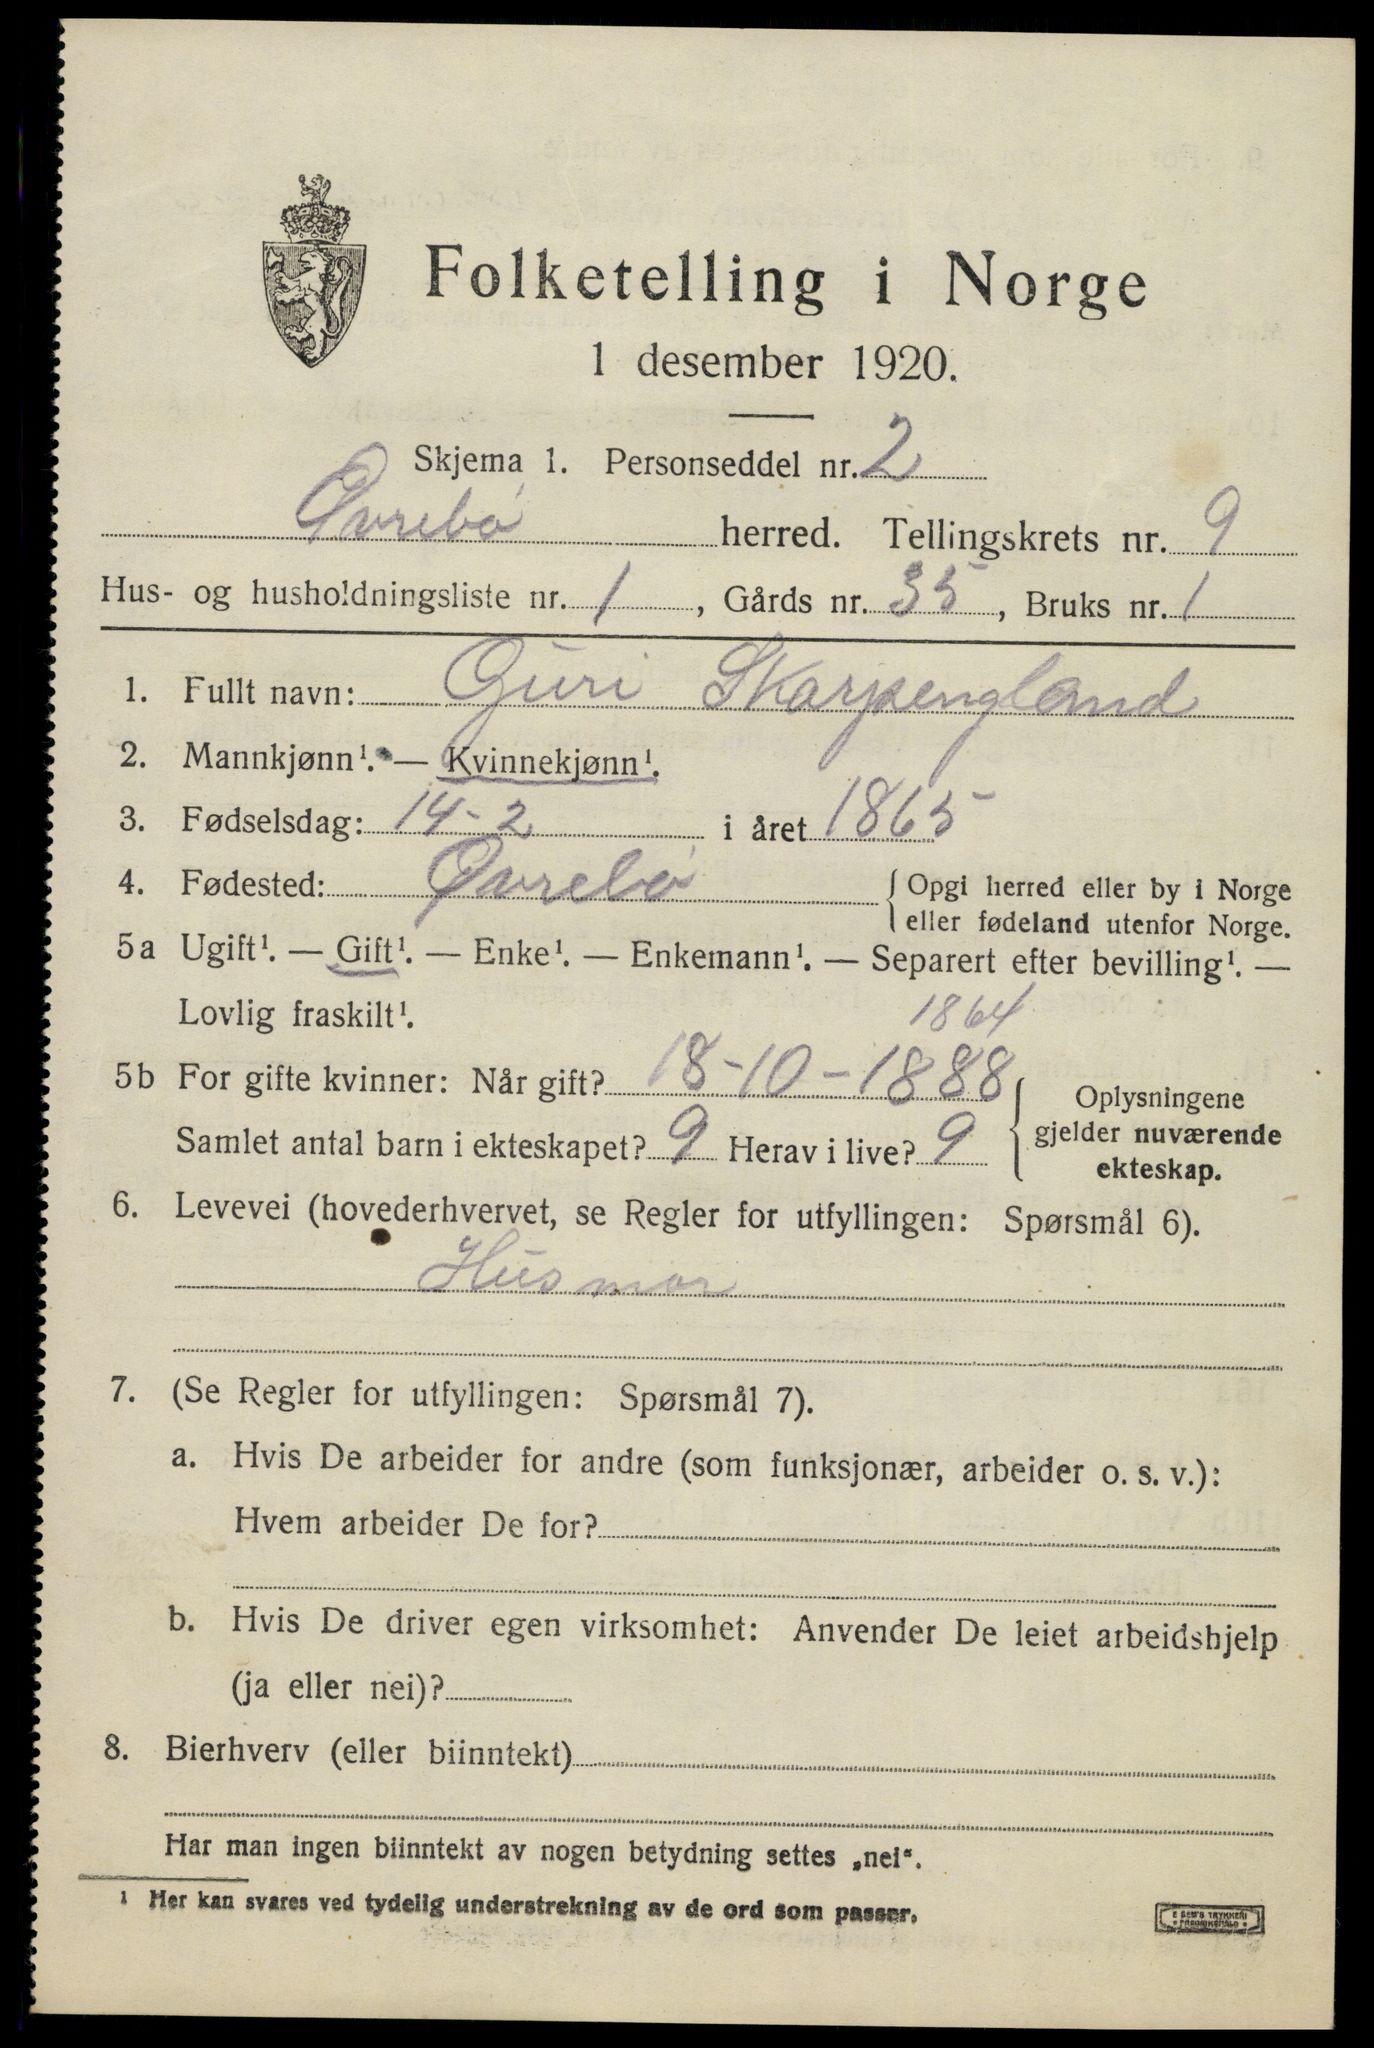 Folketelling i Norge
1 desember 1920.
Skjema 1. Personseddel nr. 2
Øvrebø herred. Tellingskrets nr. 9
Hus- og husholdningsliste nr. 1, Gårds nr. 35, Bruks nr. 1
1. Fullt navn: Guri Skarpengland
2. Mannkjønn¹. — Kvinnekjønn¹.
3. Fødselsdag: 14-2 i året 1865
4. Fødested: Øvrebø {Opgi herred eller by i Norge
eller fødeland utenfor Norge.
5a Ugift¹. — Gift¹. — Enke¹. — Enkemann¹. — Separert efter bevilling¹. —
Lovlig fraskilt¹.
1864
5b For gifte kvinner: Når gift? 18-10-1888
Samlet antal barn i ekteskapet? 9 Herav i live? 9
Oplysningene
gjelder nuværende
ekteskap.
6. Levevei (hovederhvervet, se Regler for utfyllingen: Spørsmål 6).
Husmor
7. (Se Regler for utfyllingen: Spørsmål 7).
a. Hvis De arbeider for andre (som funksjonær, arbeider o. s. v.):
Hvem arbeider De for?
b. Hvis De driver egen virksomhet: Anvender De leiet arbeidshjelp
(ja eller nei)?
8. Bierhverv (eller biinntekt)
Har man ingen biinntekt av nogen betydning settes „nei".
¹ Her kan svares ved tydelig understrekning av de ord som passer.
E SEM'S TRYKKERI
FREDRIKSHALD